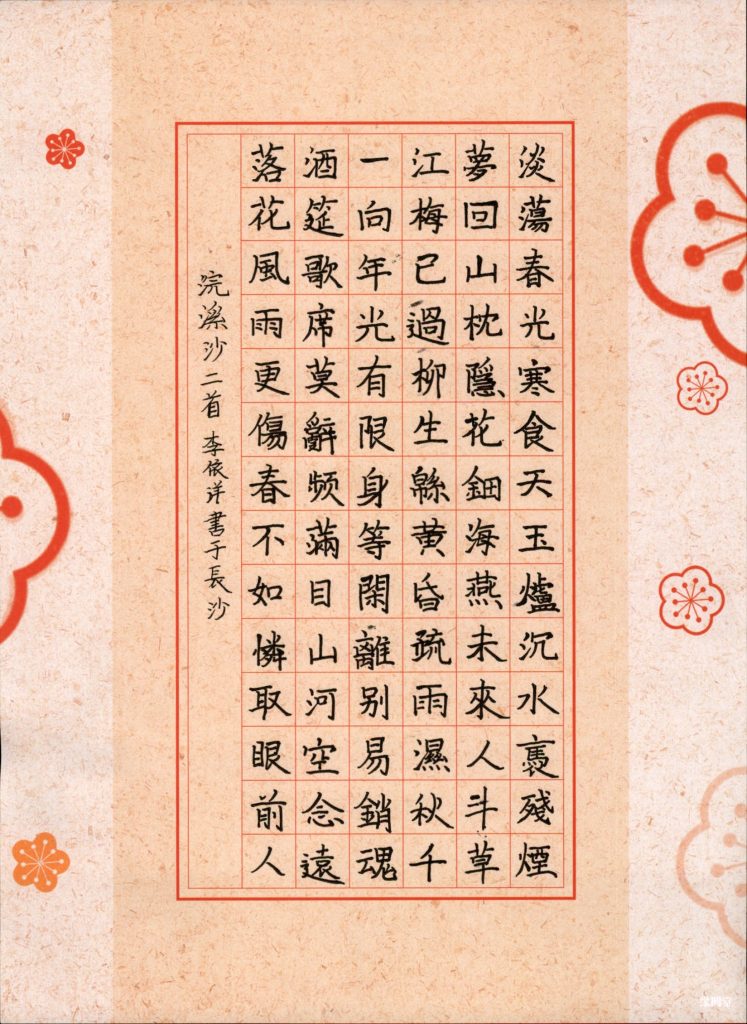 淡蕩春光寒食天玉爐沉水裊殘煙
夢回山枕隱花鈿海燕未來人斗草
江梅已過柳生緜黃昏疏雨濕秋千
一向年光有限身等閑離别易銷魂
酒筵歌席莫辭頻滿目山河空念遠
落花風雨更傷春不如憐取眼前人
浣溪沙二首 李依洋書于長沙